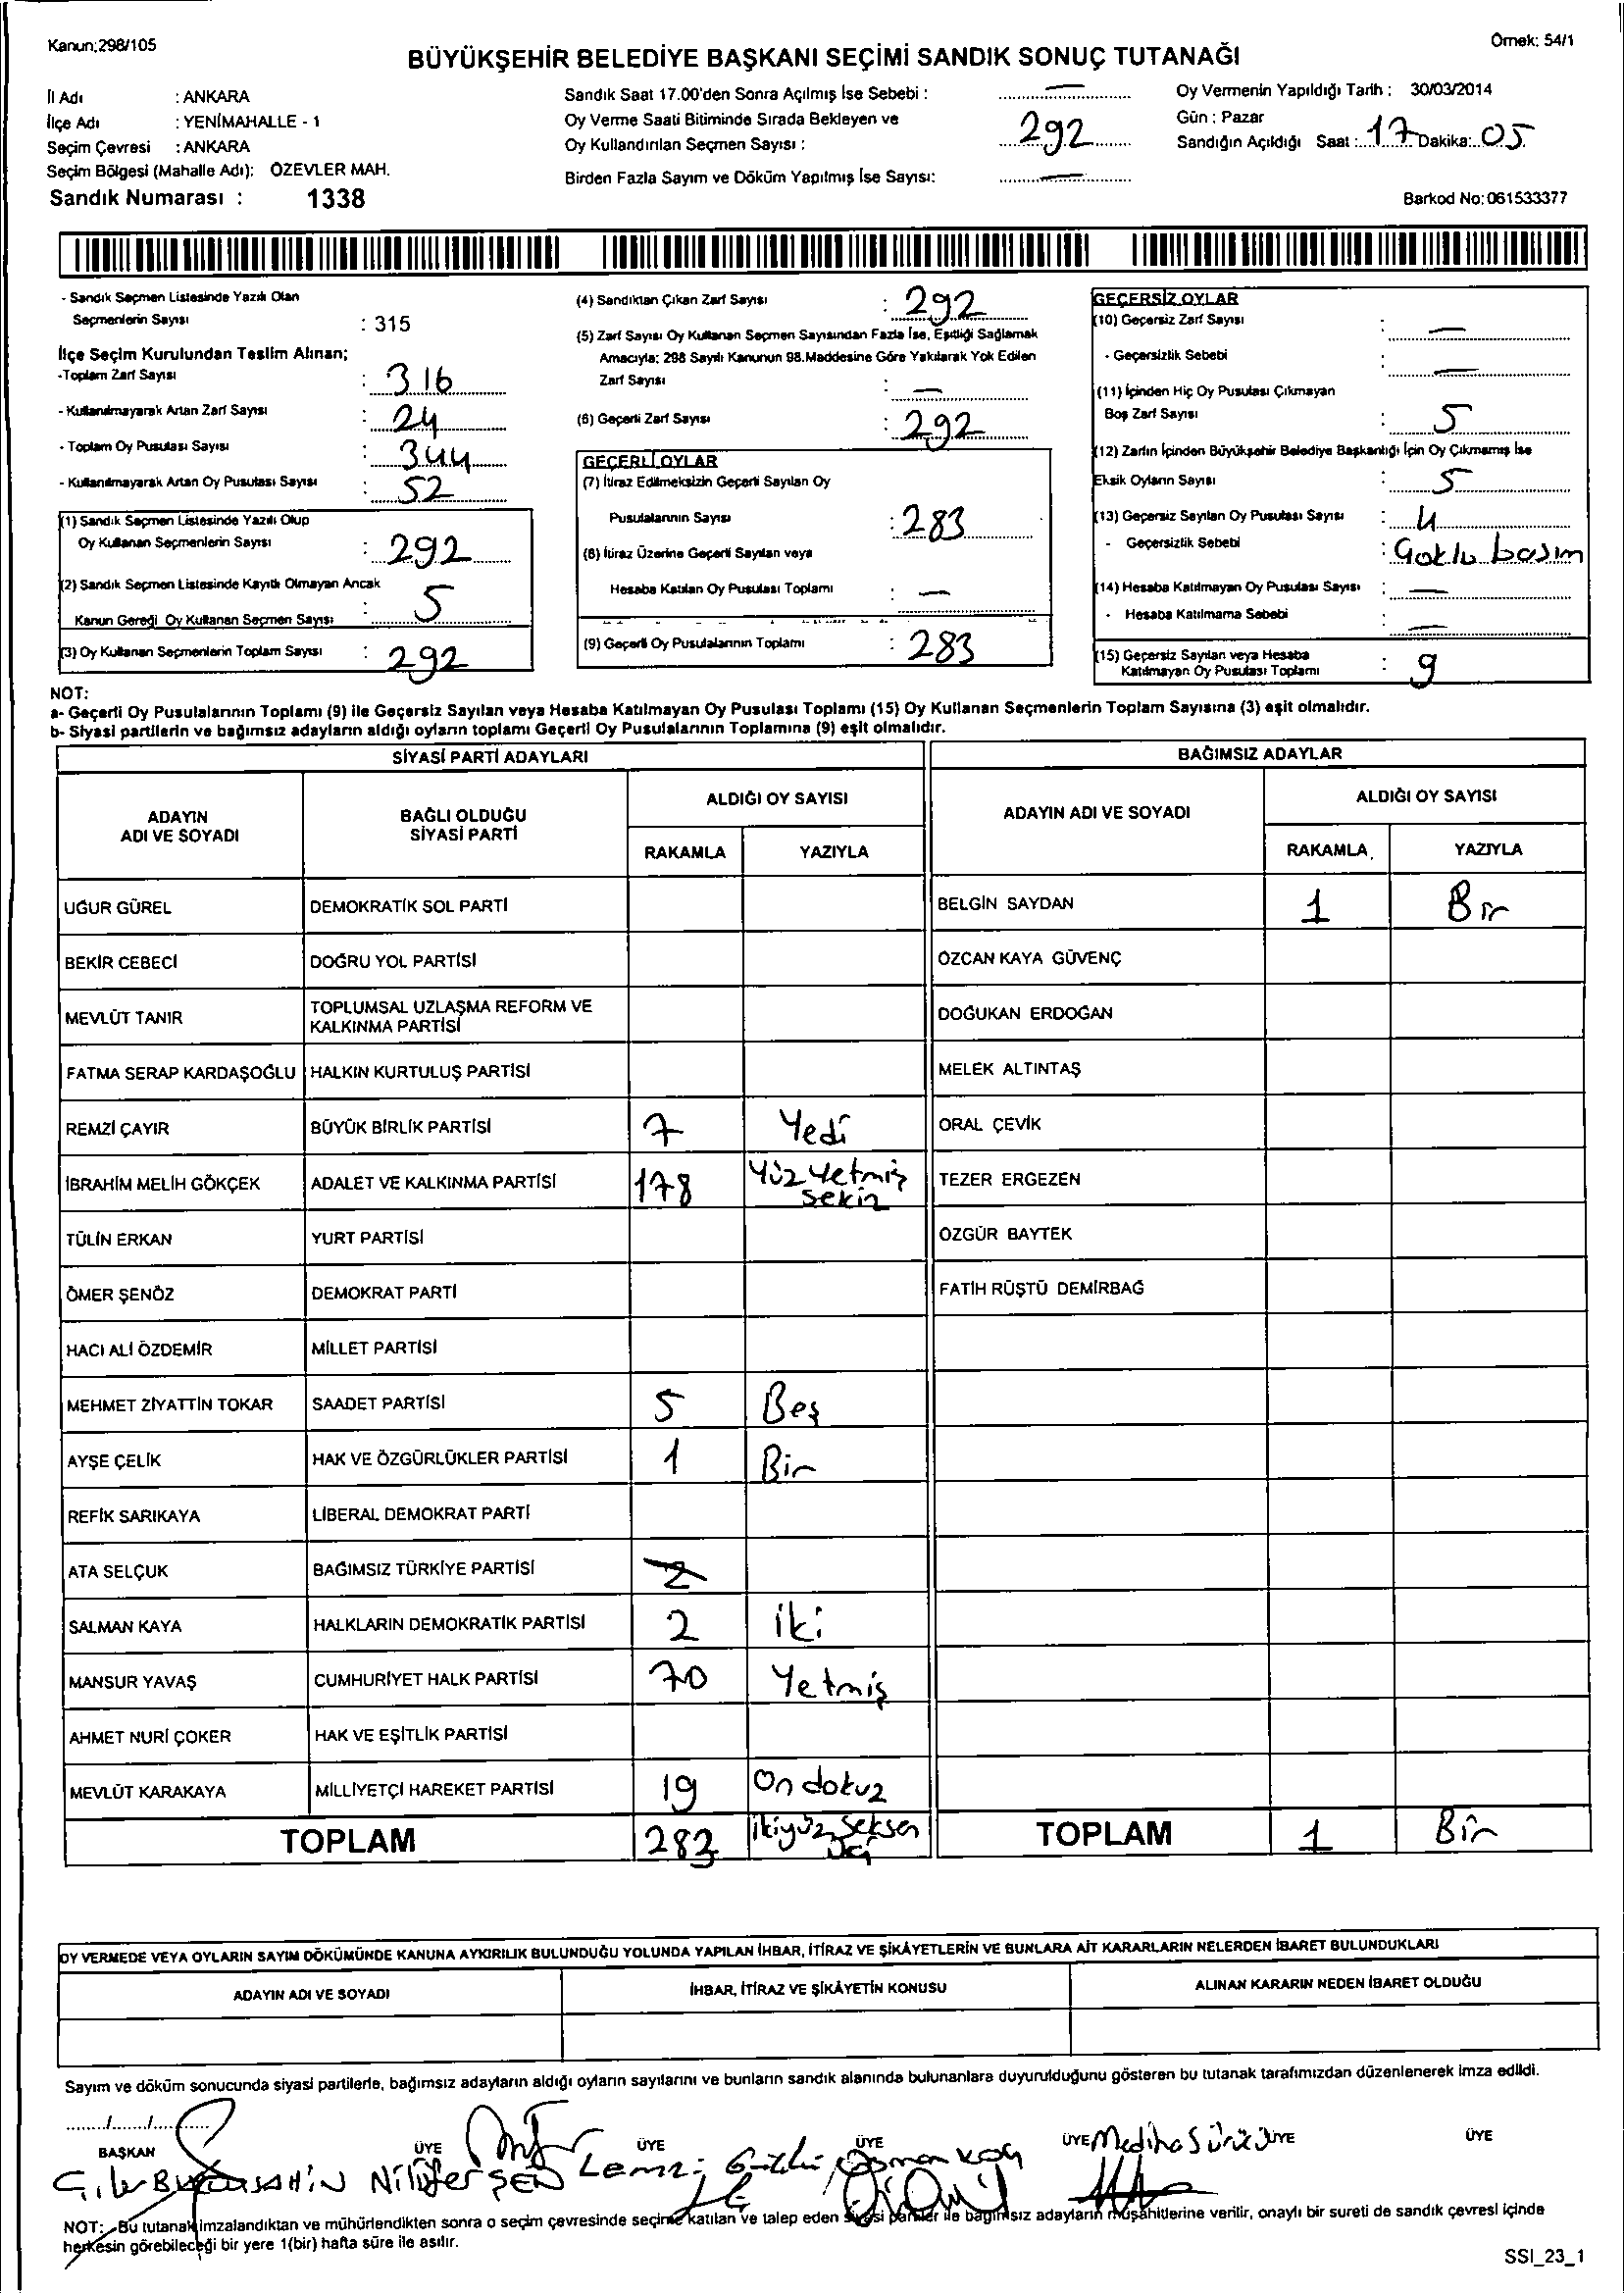 Kanun:298/105
Örnek: 54/1
BÜYÜKŞEHİR BELEDİYE BAŞKANI SEÇİMİ SANDIK SONUÇ TUTANAĞI
İl Adı : ANKARA
İlçe Adı : YENİMAHALLE - 1
Seçim Çevresi : ANKARA
Seçim Bölgesi (Mahalle Adı): ÖZEVLER MAH.
Sandık Numarası : 1338
Sandık Saat 17.00'den Sonra Açılmış İse Sebebi : —
Oy Verme Saati Bitiminde Sırada Bekleyen ve
Oy Kullandırılan Seçmen Sayısı : 292
Birden Fazla Sayım ve Döküm Yapılmış İse Sayısı: —
Oy Vermenin Yapıldığı Tarih : 30/03/2014
Gün : Pazar
Sandığın Açıldığı Saat : 17 Dakika: 05
Barkod No: 061533377
- Sandık Seçmen Listesinde Yazılı Olan
Seçmenlerin Sayısı : 315
İlçe Seçim Kurulundan Teslim Alınan;
-Toplam Zarf Sayısı : 316
- Kullanılmayarak Artan Zarf Sayısı : 24
- Toplam Oy Pusulası Sayısı : 344
- Kullanılmayarak Artan Oy Pusulası Sayısı : 52
(1) Sandık Seçmen Listesinde Yazılı Olup
Oy Kullanan Seçmenlerin Sayısı : 292
(2) Sandık Seçmen Listesinde Kayıtlı Olmayan Ancak
Kanun Gereği Oy Kullanan Seçmen Sayısı : 5
(3) Oy Kullanan Seçmenlerin Toplam Sayısı : 292
(4) Sandıktan Çıkan Zarf Sayısı : 292
(5) Zarf Sayısı Oy Kullanan Seçmen Sayısından Fazla İse, Eşitliği Sağlamak
Amacıyla; 298 Sayılı Kanunun 98.Maddesine Göre Yakılarak Yok Edilen
Zarf Sayısı : —
(6) Geçerli Zarf Sayısı : 292
GEÇERLİ OYLAR
(7) İtiraz Edilmeksizin Geçerli Sayılan Oy
Pusulalarının Sayısı : 283
(8) İtiraz Üzerine Geçerli Sayılan veya
Hesaba Katılan Oy Pusulası Toplamı : —
(9) Geçerli Oy Pusulalarının Toplamı : 283
GEÇERSİZ OYLAR
(10) Geçersiz Zarf Sayısı : —
- Geçersizlik Sebebi : —
(11) İçinden Hiç Oy Pusulası Çıkmayan
Boş Zarf Sayısı : 5
(12) Zarfın İçinden Büyükşehir Belediye Başkanlığı İçin Oy Çıkmamış İse
Eksik Oyların Sayısı : 5
(13) Geçersiz Sayılan Oy Pusulası Sayısı : 4
- Geçersizlik Sebebi : Çoklu basım
(14) Hesaba Katılmayan Oy Pusulası Sayısı : —
- Hesaba Katılmama Sebebi : —
(15) Geçersiz Sayılan veya Hesaba
Katılmayan Oy Pusulası Toplamı : 9
NOT:
a- Geçerli Oy Pusulalarının Toplamı (9) ile Geçersiz Sayılan veya Hesaba Katılmayan Oy Pusulası Toplamı (15) Oy Kullanan Seçmenlerin Toplam Sayısına (3) eşit olmalıdır.
b- Siyasi partilerin ve bağımsız adayların aldığı oyların toplamı Geçerli Oy Pusulalarının Toplamına (9) eşit olmalıdır.
SİYASİ PARTİ ADAYLARI BAĞIMSIZ ADAYLAR
ADAYIN ADI VE SOYADI BAĞLI OLDUĞU SİYASİ PARTİ ALDIĞI OY SAYISI RAKAMLA YAZIYLA
ADAYIN ADI VE SOYADI ALDIĞI OY SAYISI RAKAMLA YAZIYLA
UĞUR GÜREL DEMOKRATİK SOL PARTİ BELGİN SAYDAN 1 Bir
BEKİR CEBECİ DOĞRU YOL PARTİSİ ÖZCAN KAYA GÜVENÇ
MEVLÜT TANIR TOPLUMSAL UZLAŞMA REFORM VE KALKINMA PARTİSİ DOĞUKAN ERDOĞAN
FATMA SERAP KARDAŞOĞLU HALKIN KURTULUŞ PARTİSİ MELEK ALTINTAŞ
REMZİ ÇAYIR BÜYÜK BİRLİK PARTİSİ 7 Yedi ORAL ÇEVİK
İBRAHİM MELİH GÖKÇEK ADALET VE KALKINMA PARTİSİ 178 Yüz Yetmiş Sekiz TEZER ERGEZEN
TÜLİN ERKAN YURT PARTİSİ ÖZGÜR BAYTEK
ÖMER ŞENÖZ DEMOKRAT PARTİ FATİH RÜŞTÜ DEMİRBAĞ
HACI ALİ ÖZDEMİR MİLLET PARTİSİ
MEHMET ZİYATTİN TOKAR SAADET PARTİSİ 5 Beş
AYŞE ÇELİK HAK VE ÖZGÜRLÜKLER PARTİSİ 1 Bir
REFİK SARIKAYA LİBERAL DEMOKRAT PARTİ
ATA SELÇUK BAĞIMSIZ TÜRKİYE PARTİSİ 2
SALMAN KAYA HALKLARIN DEMOKRATİK PARTİSİ 2 iki
MANSUR YAVAŞ CUMHURİYET HALK PARTİSİ 70 Yetmiş
AHMET NURİ ÇOKER HAK VE EŞİTLİK PARTİSİ
MEVLÜT KARAKAYA MİLLİYETÇİ HAREKET PARTİSİ 19 On dokuz
TOPLAM 283 ikiyüz Seksen üç TOPLAM 1 Bir
OY VERMEDE VEYA OYLARIN SAYIM DÖKÜMÜNDE KANUNA AYKIRILIK BULUNDUĞU YOLUNDA YAPILAN İHBAR, İTİRAZ VE ŞİKÂYETLERİN VE BUNLARA AİT KARARLARIN NELERDEN İBARET BULUNDUKLARI
ADAYIN ADI VE SOYADI İHBAR, İTİRAZ VE ŞİKÂYETİN KONUSU ALINAN KARARIN NEDEN İBARET OLDUĞU
Sayım ve döküm sonucunda siyasi partilerle, bağımsız adayların aldığı oyların sayılarını ve bunların sandık alanında bulunanlara duyurulduğunu gösteren bu tutanak tarafımızdan düzenlenerek imza edildi.
....../....../......
BAŞKAN ÜYE ÜYE ÜYE ÜYE ÜYE ÜYE
Nilüfer ŞEN Osman Koç Mediha Sürücü
NOT: Bu tutanak imzalandıktan ve mühürlendikten sonra o seçim çevresinde seçime katılan ve talep eden siyasi partiler ile bağımsız adayların müşahitlerine verilir, onaylı bir sureti de sandık çevresi içinde
herkesin görebileceği bir yere 1(bir) hafta süre ile asılır.
SSI_23_1